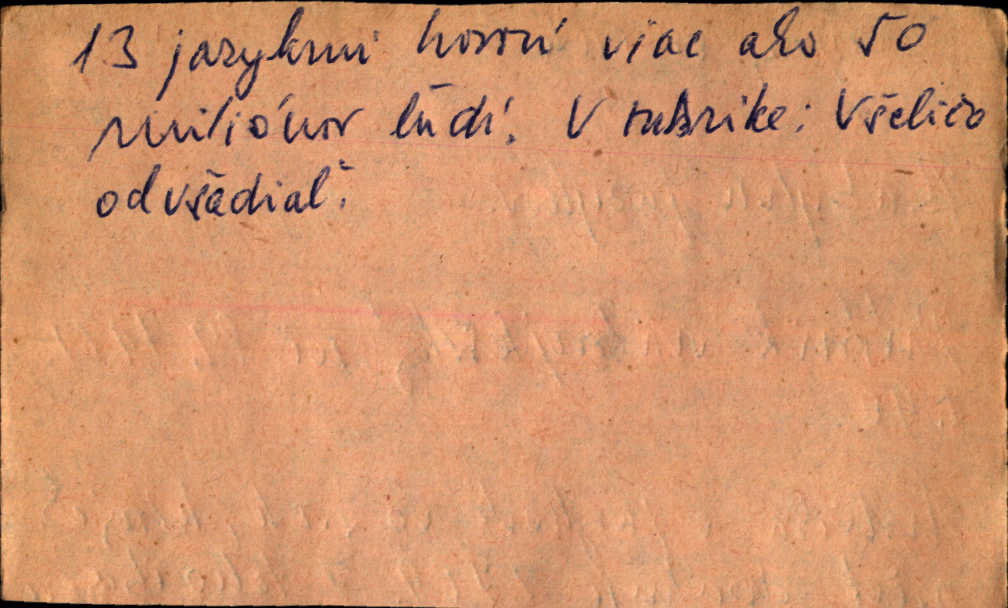 13 jazykmi hovorí viac ako 50
miliónov ľudí. V rubrike: Všeličo
odvšadiaľ.